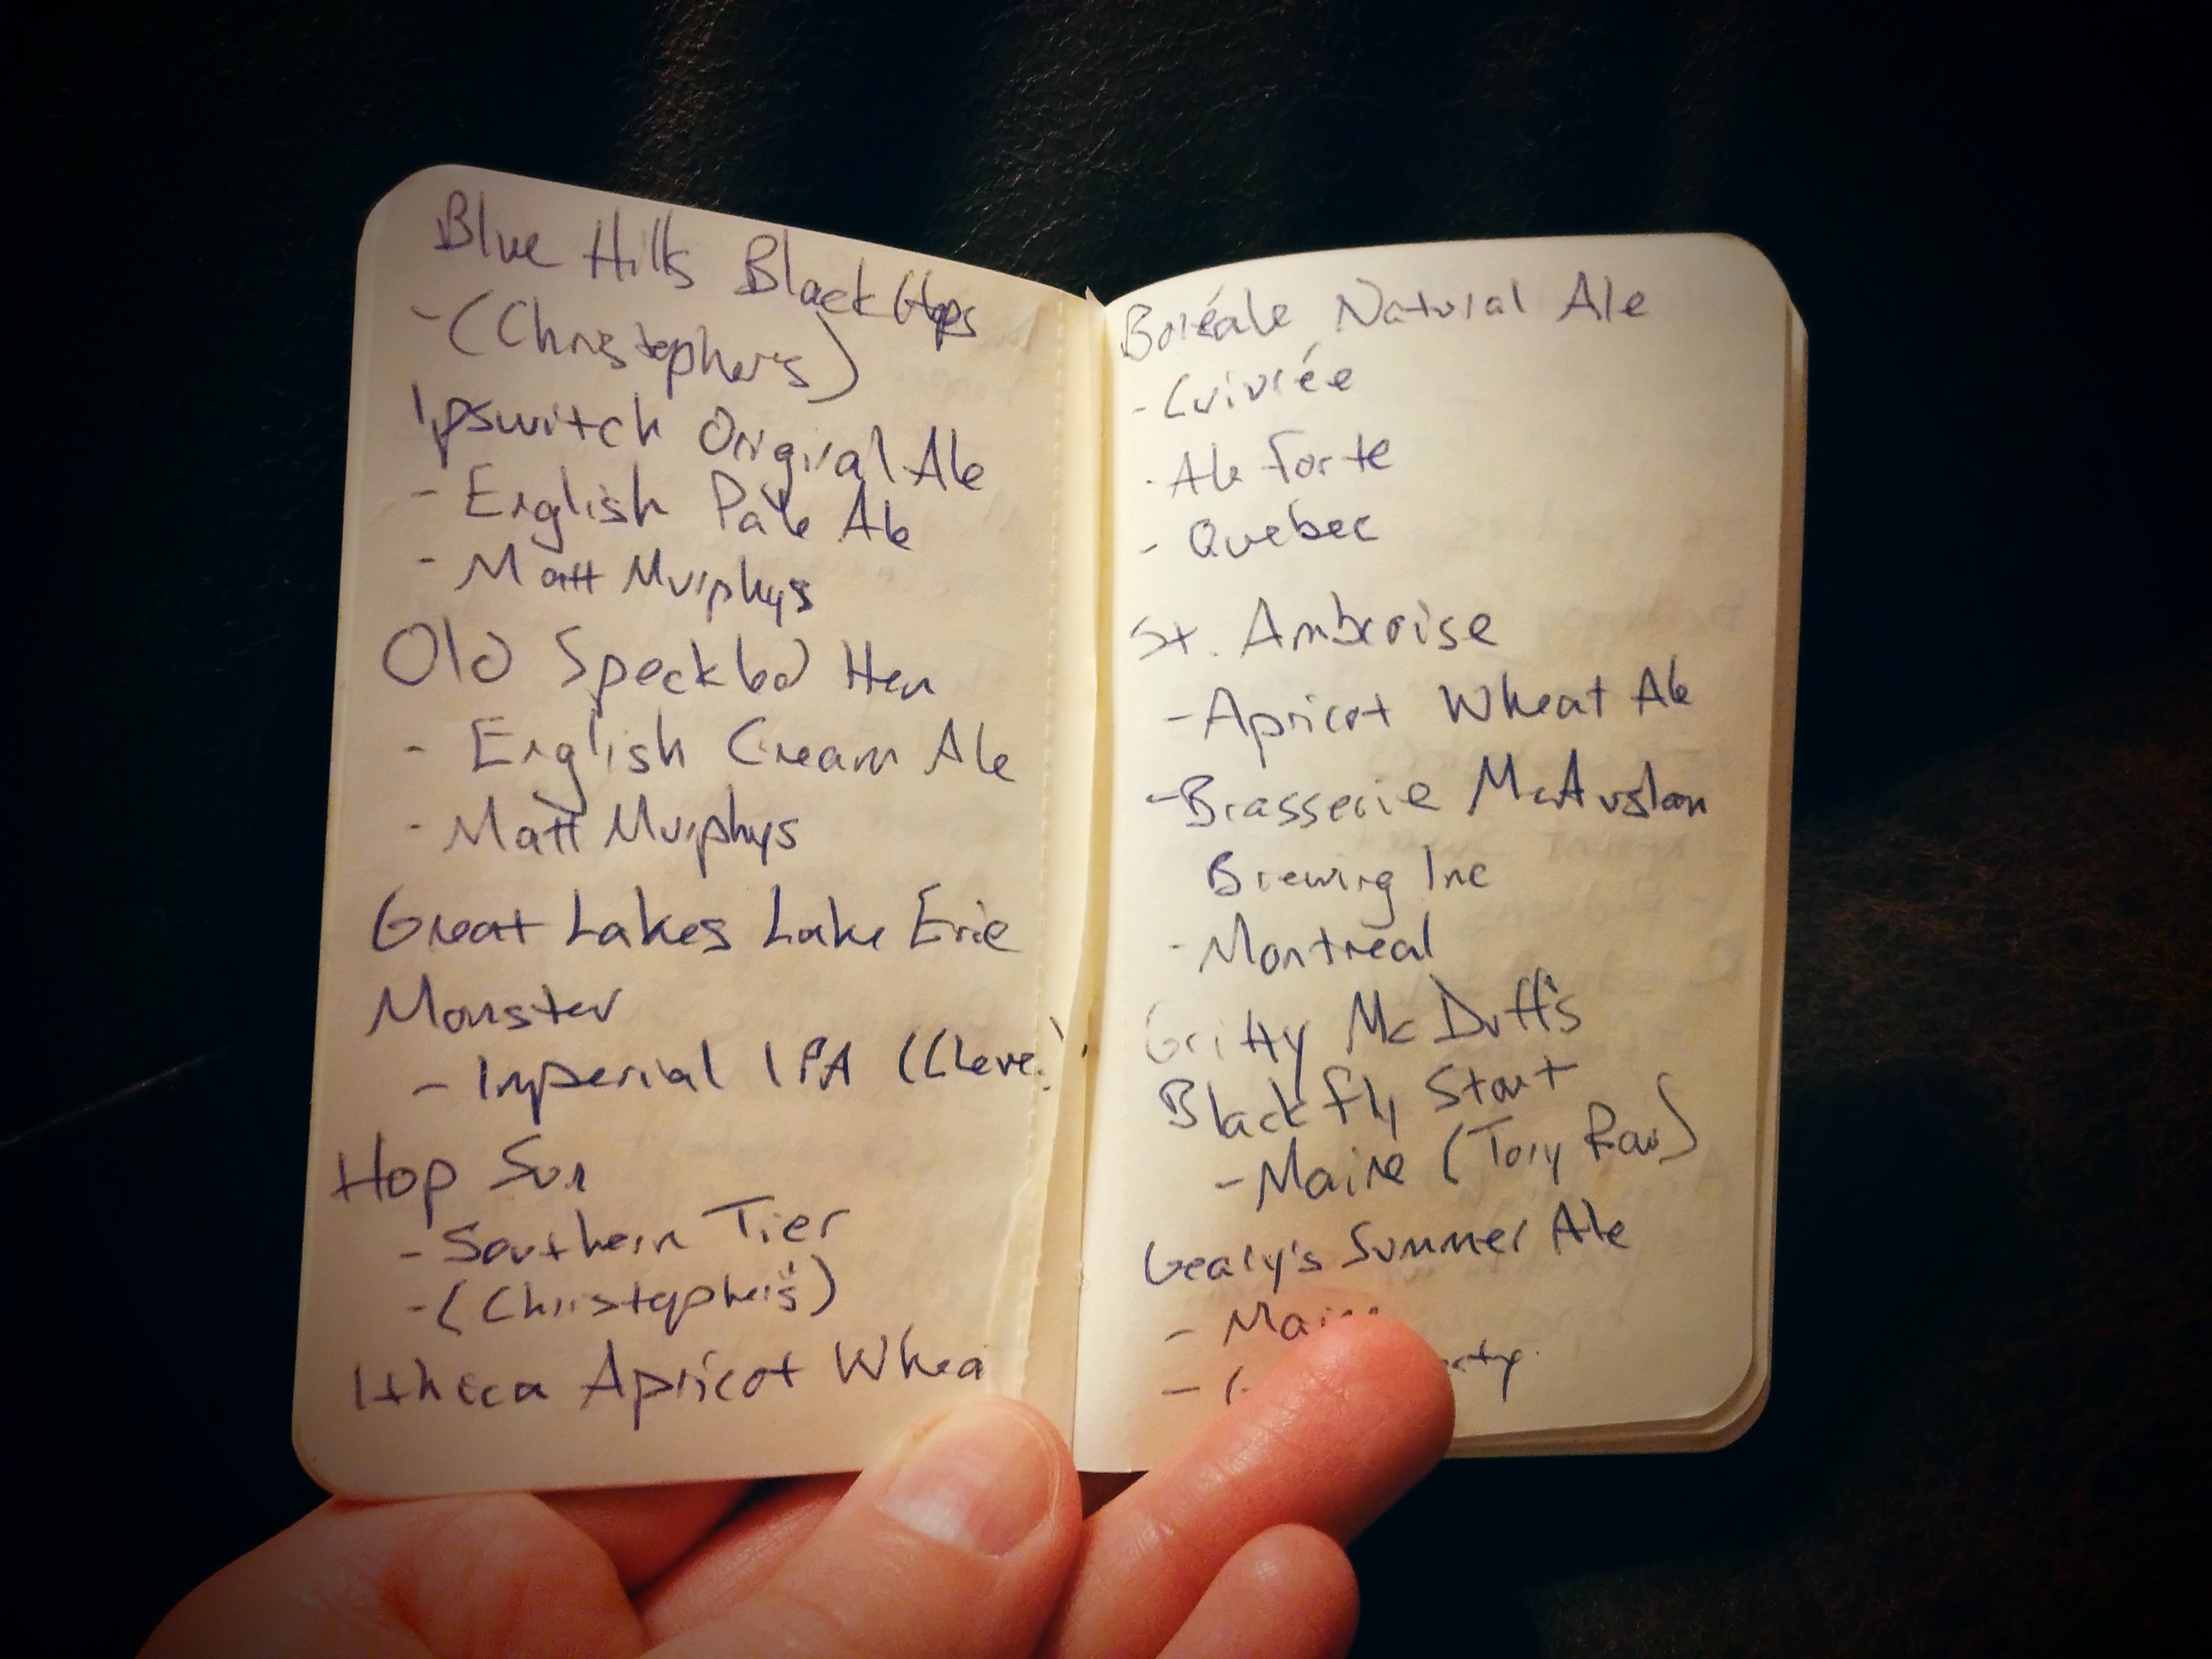 Blue Hills Black Hops
- (Christopher's)
Ipswitch Original Ale
- English Pale Ale
- Matt Murphys
Old Speckled Hen
- English Cream Ale
- Matt Murphys
Great Lakes Lake Erie
Monster
- Imperial IPA (Cleve.)
Hop Sun
- Southern Tier
- (Christopher's)
Ithica Apricot Whea
Boréale Natural Ale
- Cuivrée
- Ale Forte
- Quebec
St. Ambroise
- Apricot Wheat Ale
- Brasserie McAuslan
Brewing Inc
- Montreal
Gritty McDuff's
Black Fly Stout
- Maine (Tory Row)
Geary's Summer Ale